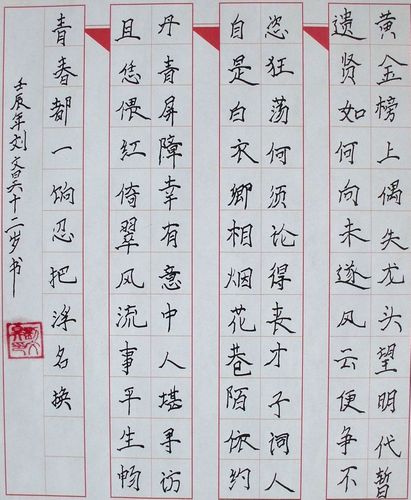 黄金榜上偶失龙头望明代暂
遗贤如何向未遂风云便争不
恣狂荡何须论得丧才子词人
自是白衣卿相烟花巷陌依约
丹青屏障幸有意中人堪寻访
且恁偎红倚翠风流事平生畅
青春都一饷忍把浮名换
壬辰年刘文十二岁书